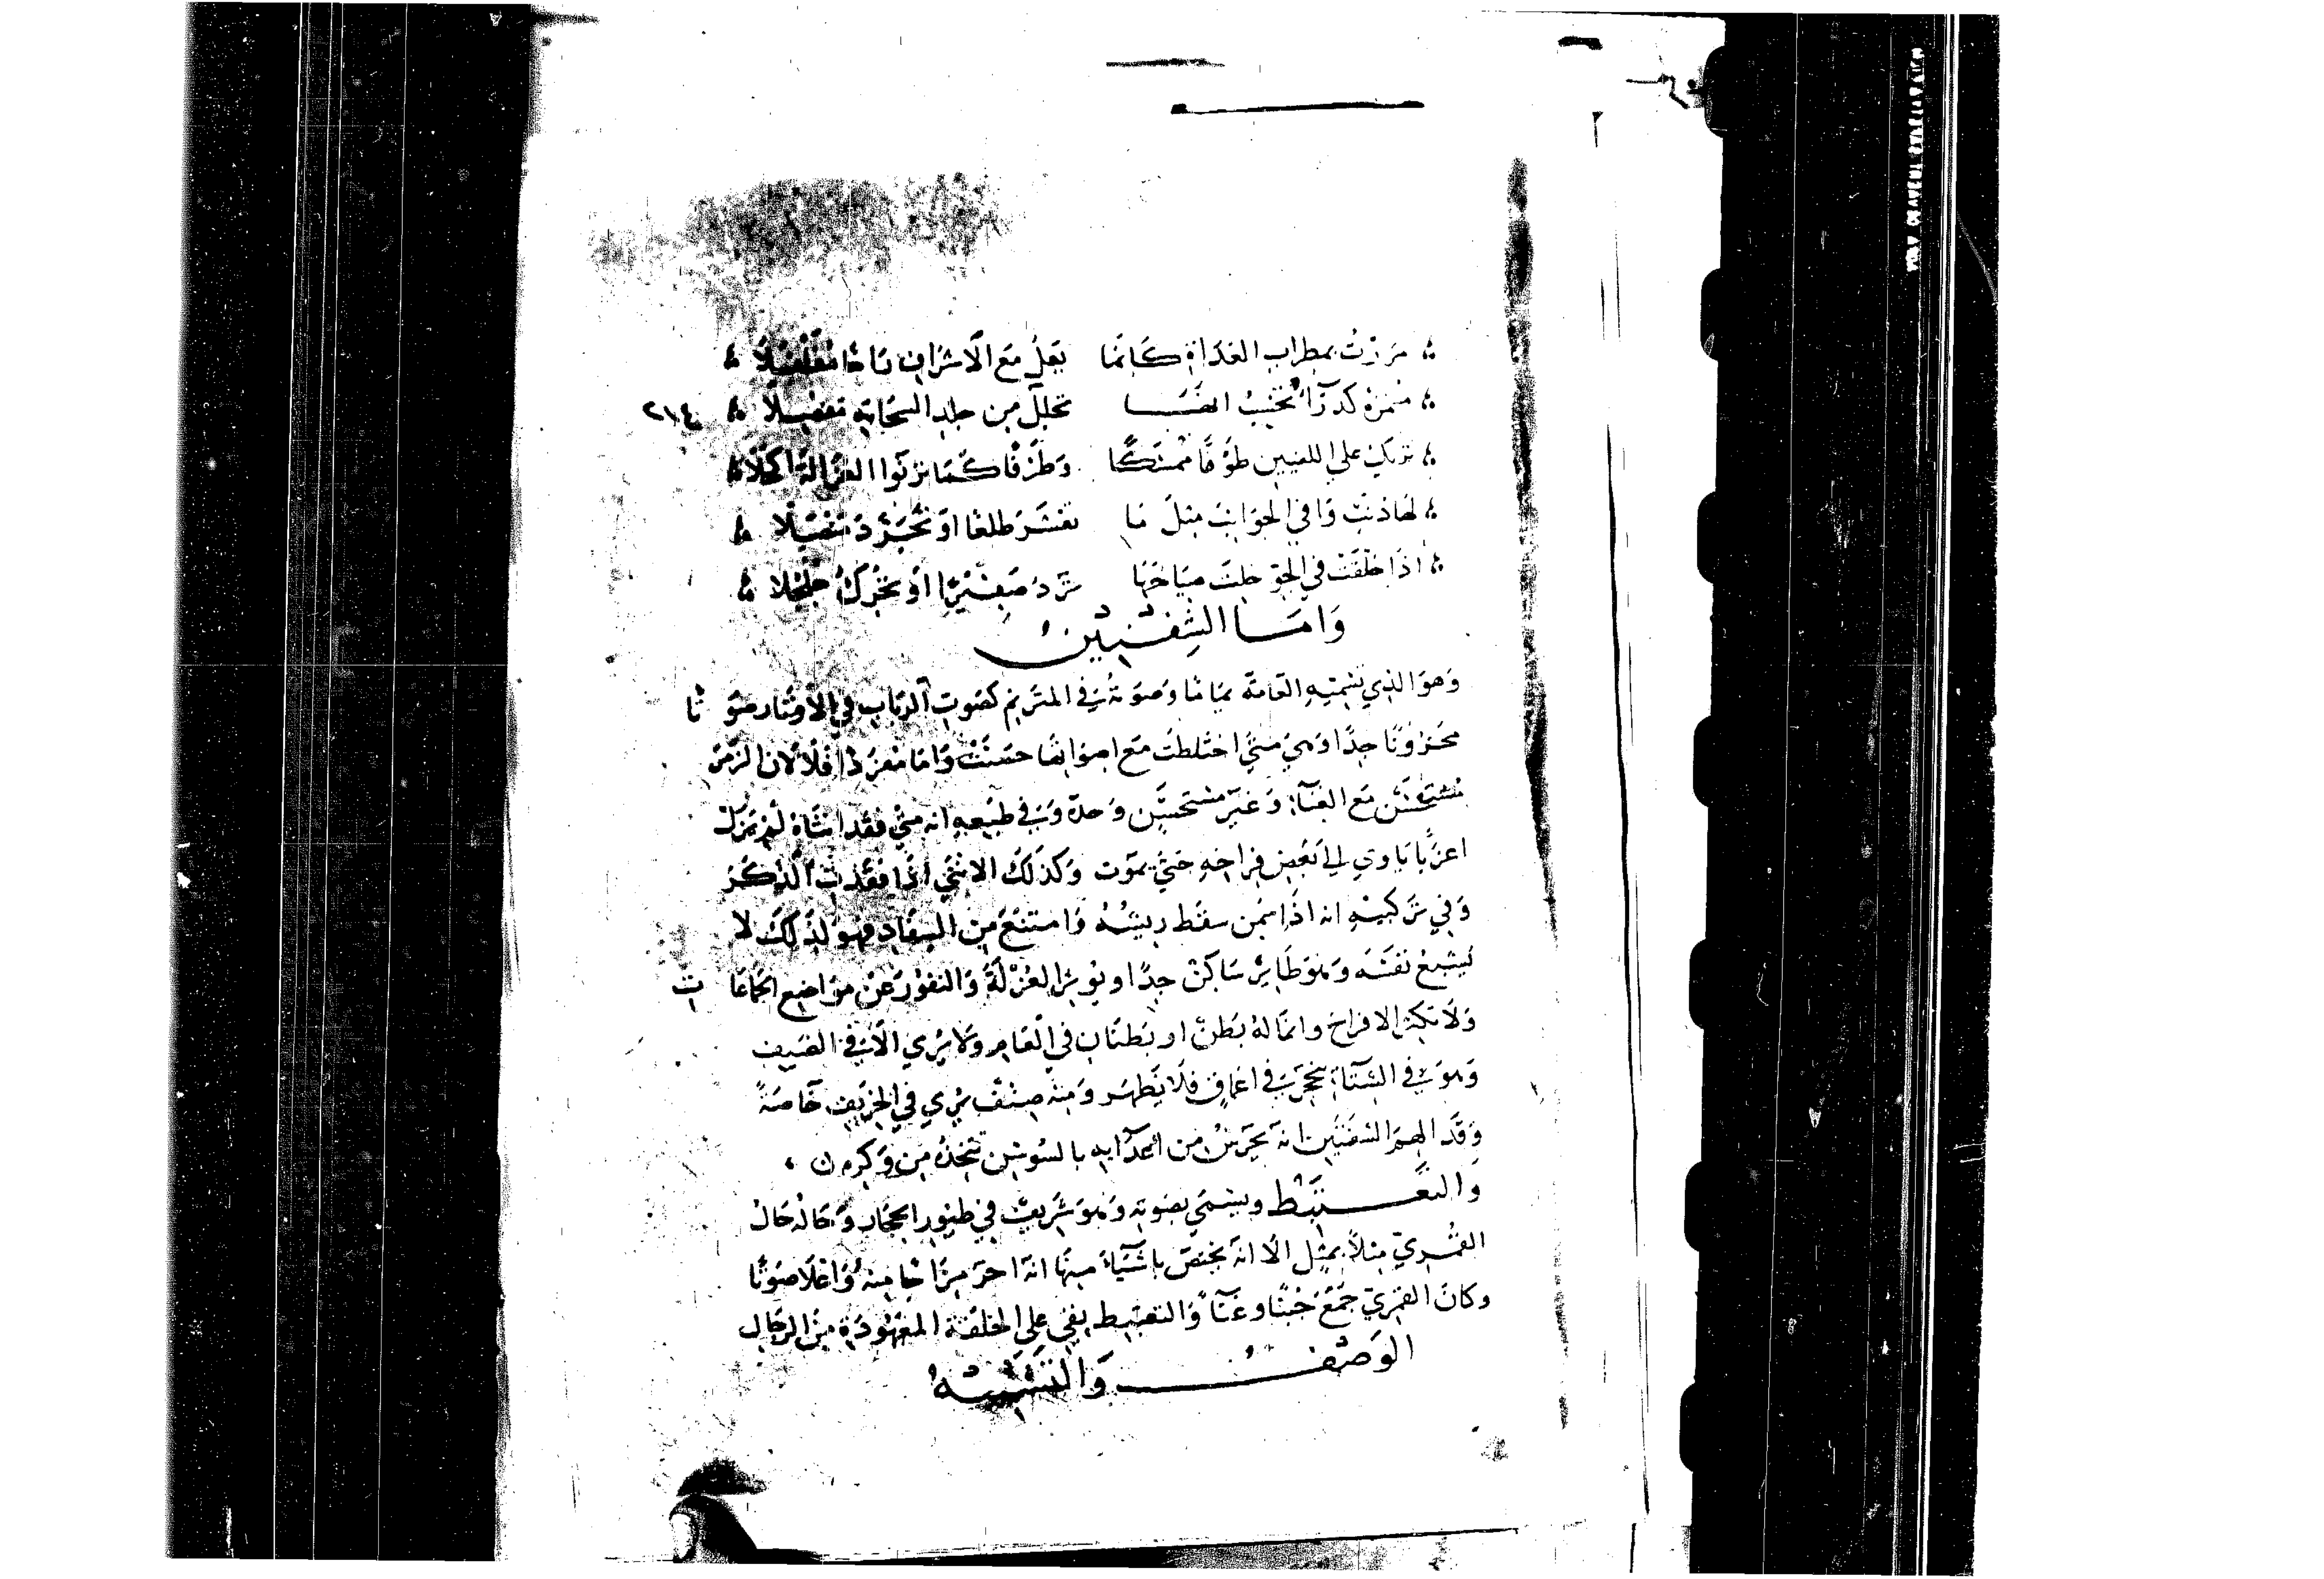 مررت بمطراب الغداة كانما تعل مع الاشراق راحا مفلفلا
منمرة كدرآ تحسب انها تجلل من جلد السحابة مفصلا
٢١٤
تريك على اللبتين طوقا ممسكا وطرفا كما ترنوا الغزالة اكحلا
لها ذنب وافي الجوانب مثل ما تقشر طلعا او تجرد منصلا
اذا حلقت في الجو خلت جناحها ترد صفيرا او تحرك جلجلا
وَامَا الشفنين
وهو الذي تسميه العامة يماما وصوته في الترنم كصوت الرباب في الاوتار صوتا
محزونا جدا وهي متي اختلطت مع اصواتها حسنت واما مفردا فلا لان الزمر
مستحسن مع الغنآء وغير مستحسن وحده وفي طبعه انه متي فقد انثاه لم يزل
اعزبا ياوي الي بعض فراخه حتي يموت وكذلك الانثي اذا فقدت الذكر
وفي تركيبه انه اذا سمن سقط ريشه وامتنع من السفاد فهو لذلك لا
يشبع نفسه وهو طاير ساكن جدا ويوثر العزلة والنفور عن مواضع الجماعات
ولا يكثر الافراخ وانما له بطن او بطنان في العام ولا يري الا في الصيف
وهو في الشتآء ينجحر في اعماق فلا يظهر ومنه صنف يري في الخريف خاصة
وقد الهم الشفنين انه يحترس من اعدآيه بالسوسن يتخذه من وكره ن
والتعبيط ويسمي بصوته وهو شريف في طيور الحجاز وحاله حال
القمري مثلا بمثل الا انه يختص باشيآء منها انه احر مزاجا منه واعلا صوتا
وكان القمري جمع خبثا وغنآ والتعبيط بقي علي الخلقة المعهودة من الرجال
الوصف والتشبيه